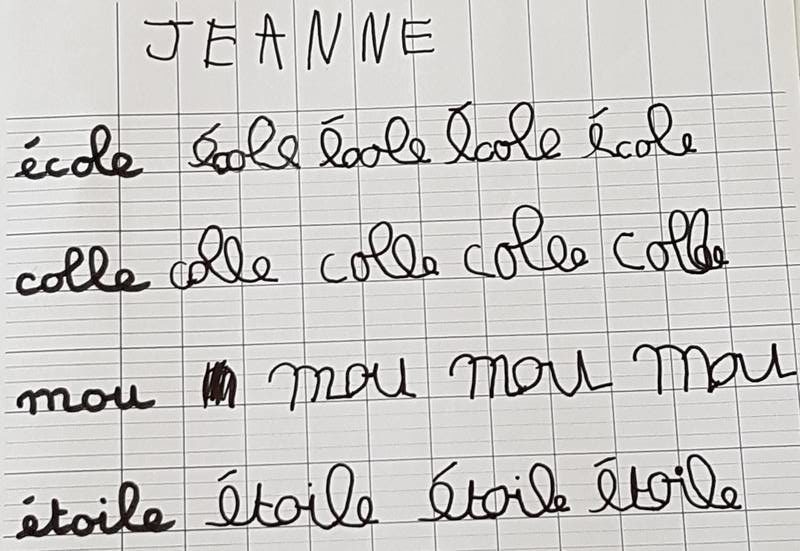 JEANNE
école école école école école
colle colle colle colle colle
mou mou mou mou
étoile étoile étoile étoile